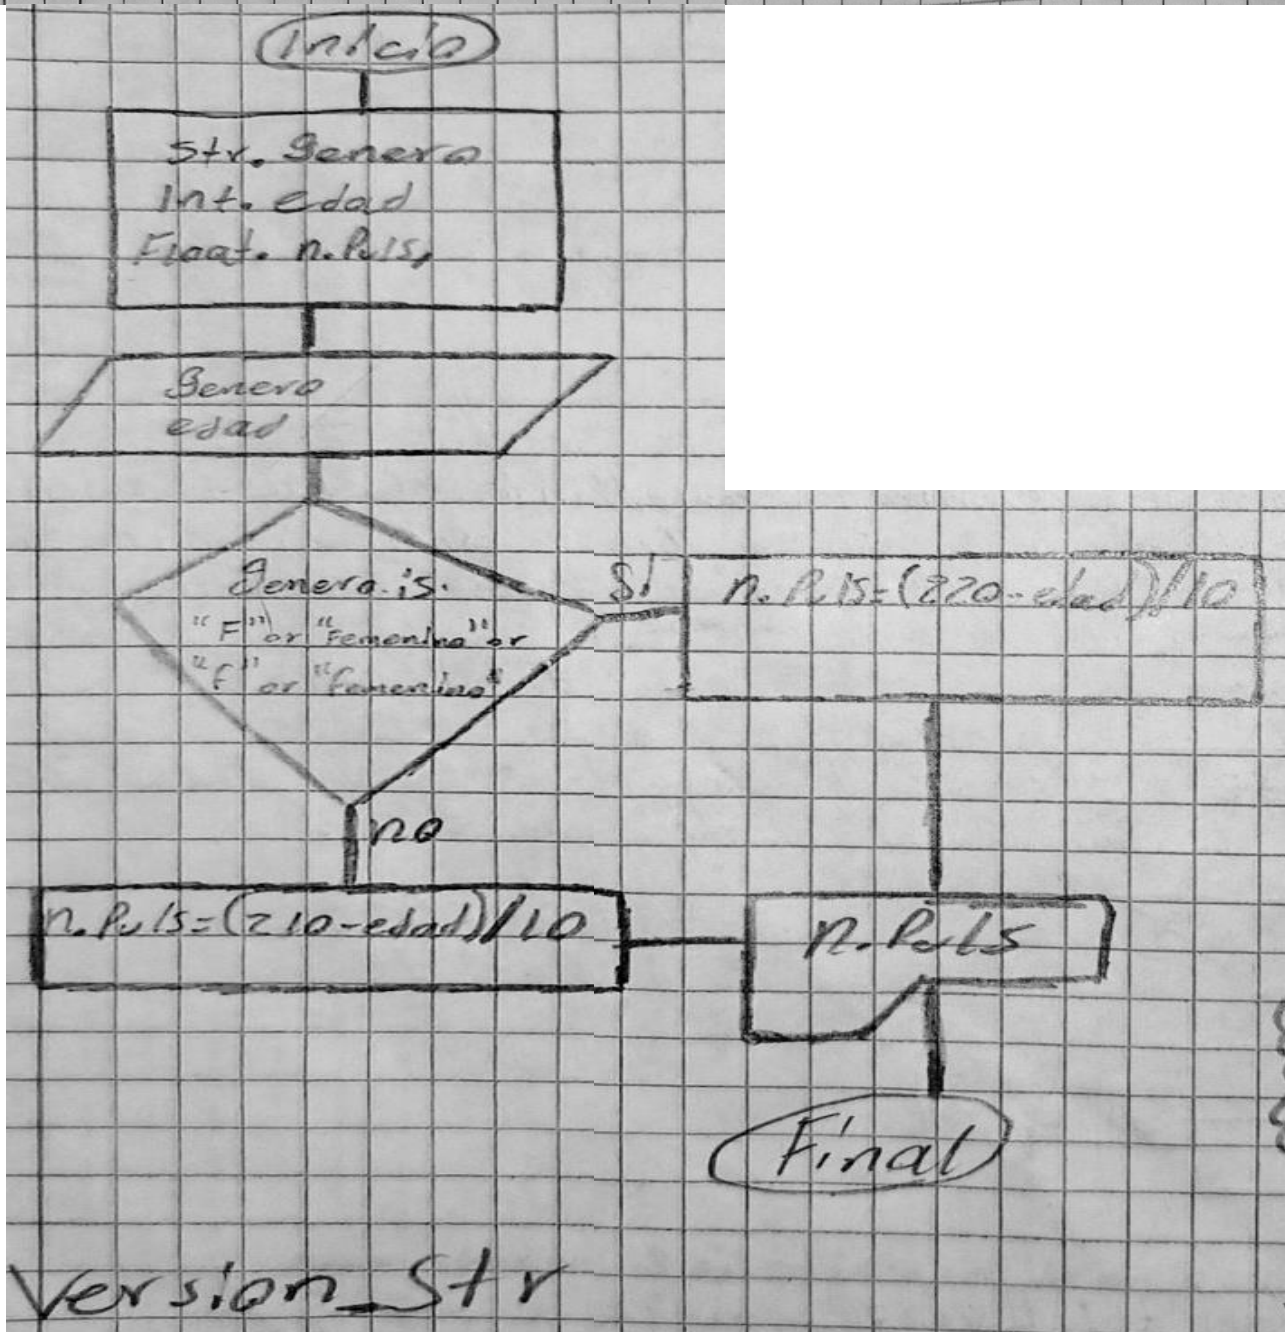 Inicio
Str. Genero
Int. edad
Float. n.Puls,
Genero
edad
Genero is.
"F" or "Femenino" or
"f" or "femenino"
Si
n.Puls=(220-edad)/10
no
n.Puls=(210-edad)/10
n.Puls
Final
Version_Str